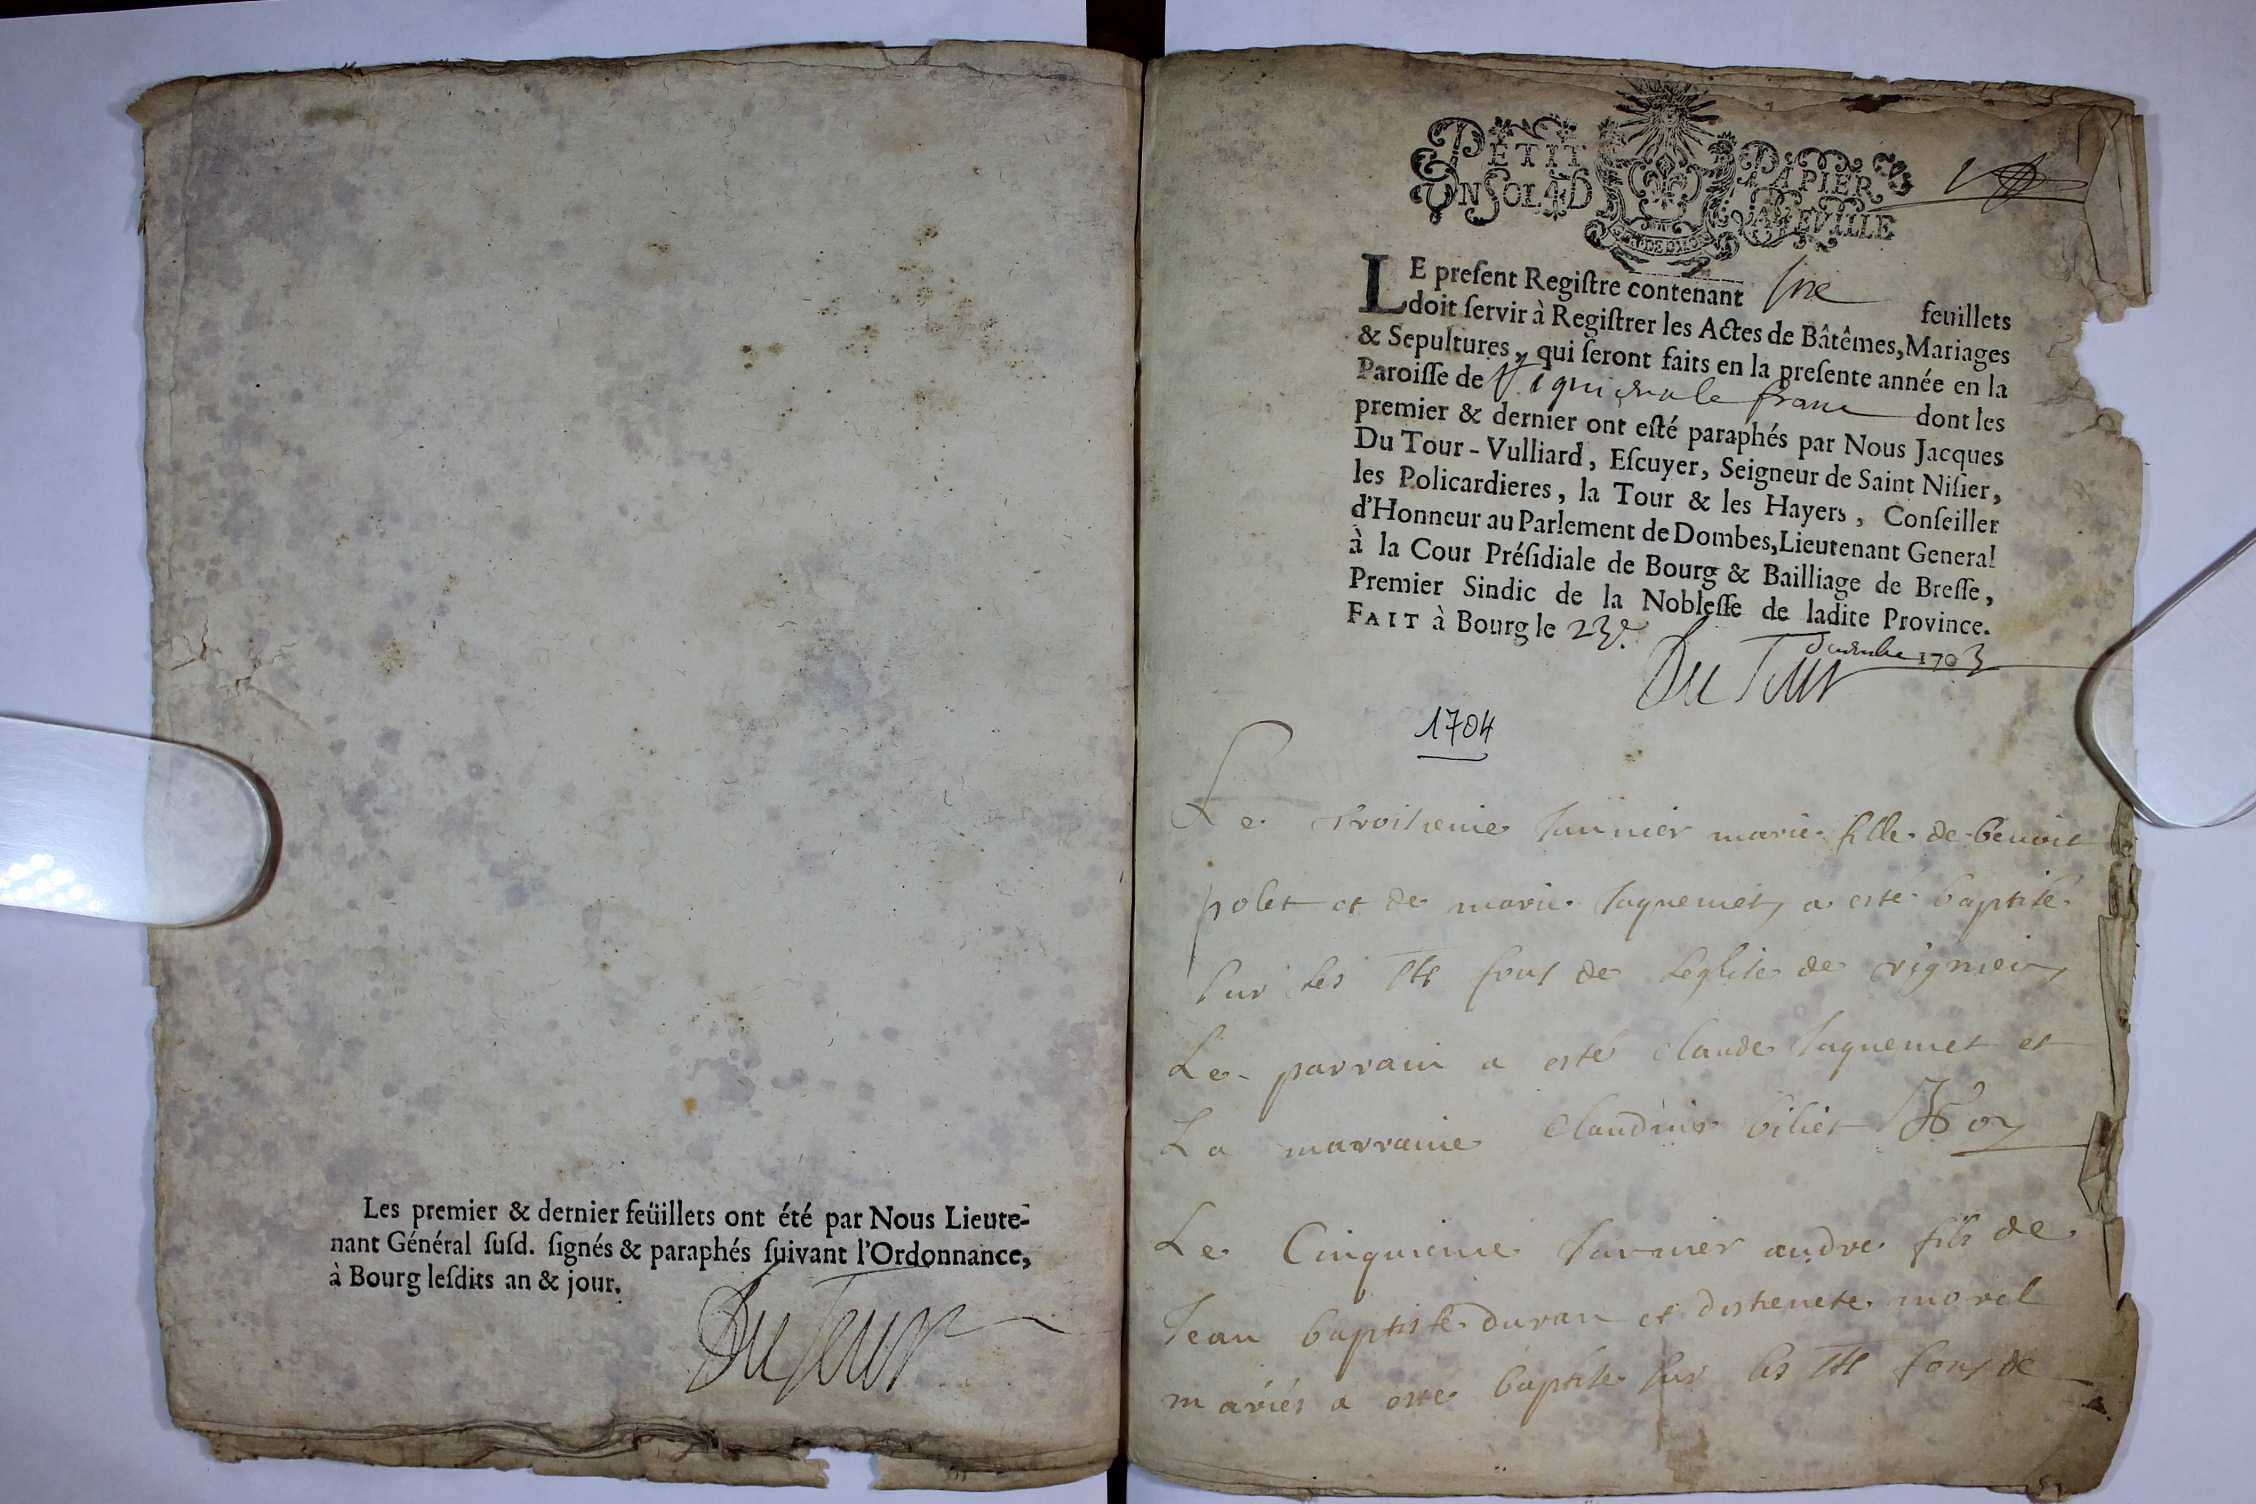 Les premier & dernier feüillets ont été par Nous Lieute-
nant Général susd. signés & paraphés suivant l'Ordonnance,
à Bourg lesdits an & jour.
DuTour
PETIT PAPIER
UN SOL 4 D
LE present Registre contenant feuillets
doit servir à Registrer les Actes de Bâtêmes, Mariages
& Sepultures, qui seront faits en la presente année en la
Paroisse de le franc dont les
premier & dernier ont esté paraphés par Nous Jacques
Du Tour-Vulliard, Escuyer, Seigneur de Saint Nisier,
les Policardieres, la Tour & les Hayers, Conseiller
d'Honneur au Parlement de Dombes, Lieutenant General
à la Cour Présidiale de Bourg & Bailliage de Bresse,
Premier Sindic de la Noblesse de ladite Province.
FAIT à Bourg le 23e.
decembre 1703
Du Tour
1704
Le troisieme Janvier marie fille de benoit
polet et de marie Jaquemet, a esté baptisé
sur les sts fons de Leglise de vignieu,
Le parrain a esté Claude Jaquemet et
La marraine Claudine
Le Cinquieme Janvier andre fils de
Jean baptiste duran et distienete morel
mariés a esté baptisé sur les sts fons de